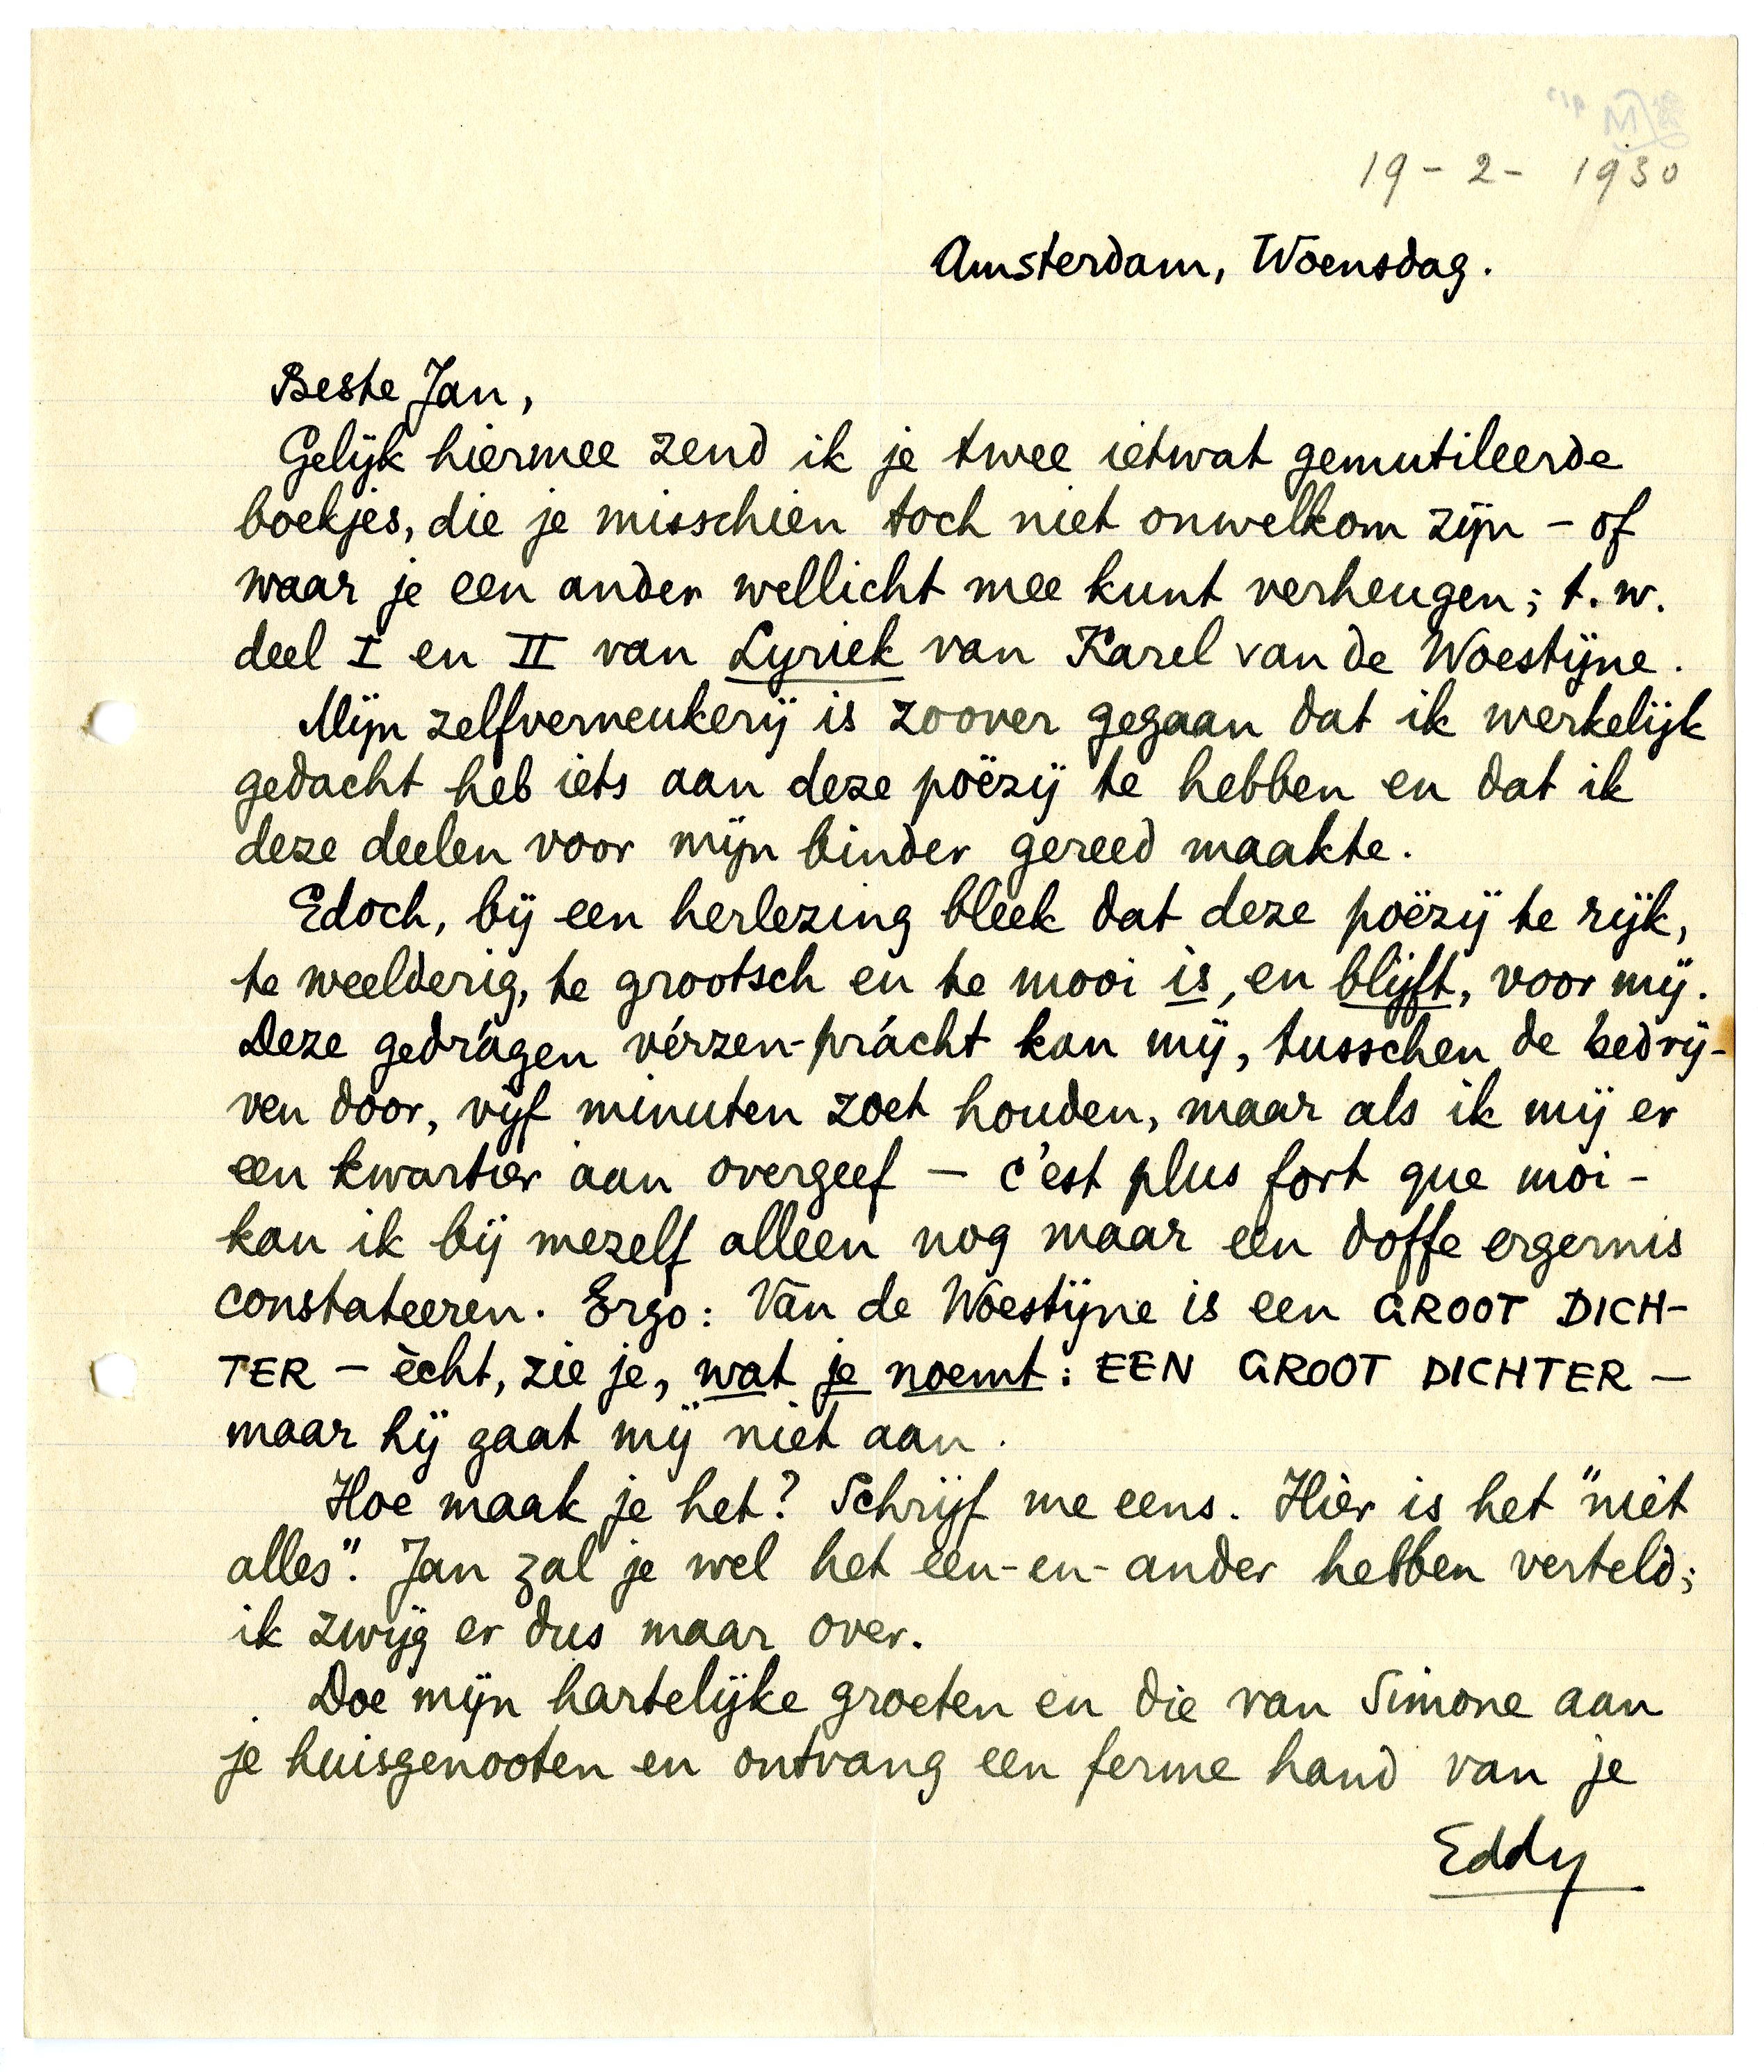 19 - 2 - 1930
Amsterdam, Woensdag.
Beste Jan,
Gelijk hiermee zend ik je twee ietwat gemutileerde
boekjes, die je misschien toch niet onwelkom zijn – of
waar je een ander wellicht mee kunt verheugen; t.w.
deel I en II van Lyriek van Karel van de Woestijne.
Mijn zelfverneukerij is zoover gegaan dat ik werkelijk
gedacht heb iets aan deze poëzij te hebben en dat ik
deze deelen voor mijn binder gereed maakte.
Edoch, bij een herlezing bleek dat deze poëzij te rijk,
te weelderig, te grootsch en te mooi is, en blijft, voor mij.
Deze gedrágen vérzen-prácht kan mij, tusschen de bedrij-
ven door, vijf minuten zoet houden, maar als ik mij er
een kwartier aan overgeef – c'est plus fort que moi –
kan ik bij mezelf alleen nog maar een doffe ergernis
constateeren. Ergo: Van de Woestijne is een GROOT DICH-
TER – ècht, zie je, wat je noemt: EEN GROOT DICHTER –
maar hij gaat mij niet aan.
Hoe maak je het? Schrijf me eens. Hier is het "niet
alles". Jan zal je wel het een-en-ander hebben verteld;
ik zwijg er dus maar over.
Doe mijn hartelijke groeten en die van Simone aan
je huisgenooten en ontvang een ferme hand van je
Eddy